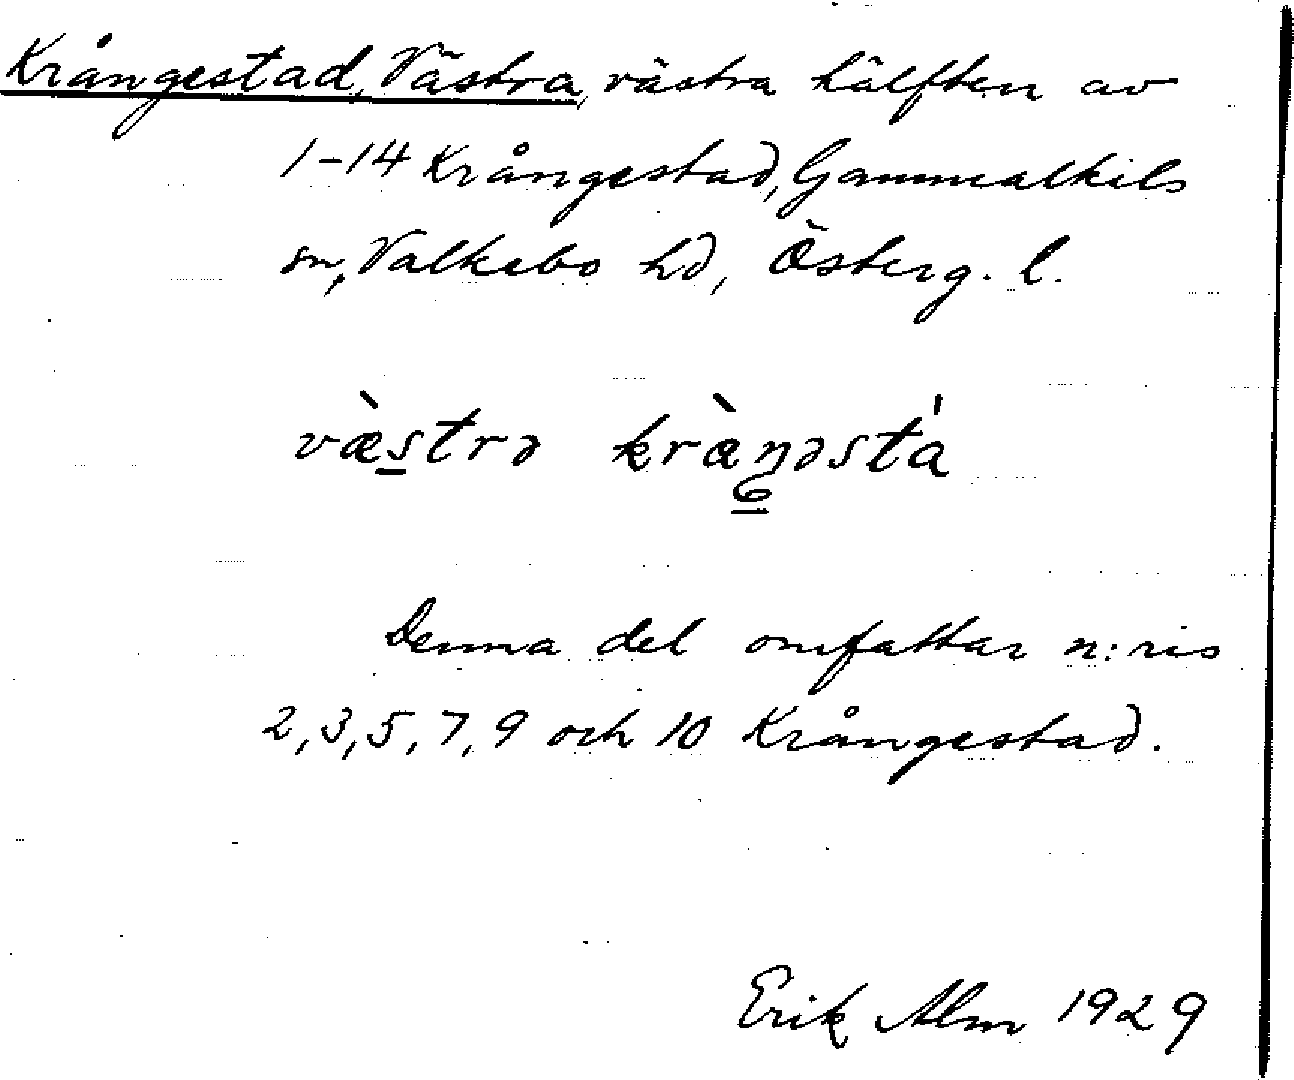 Krångestad, Västra, västra hälften av
1-14 Krångestad, Gammalkils
sn, Valkebo hd, Österg. l.
væ̀strə kræ̀ŋəstá
Denna del omfattar n:ris
2, 3, 5, 7, 9 och 10 Krångestad.
Erik Alm 1929